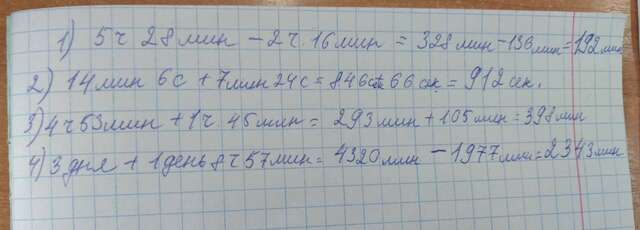 1) 5ч 28мин - 2ч. 16мин = 328мин - 136мин = 192мин
2) 14мин 6с + 7мин 24с = 846с + 66сек = 912сек.
3) 4ч 53мин + 1ч. 45мин = 293мин + 105мин = 398мин
4) 3 дня + 1день 8ч 57мин = 4320мин - 1977мин = 2343мин